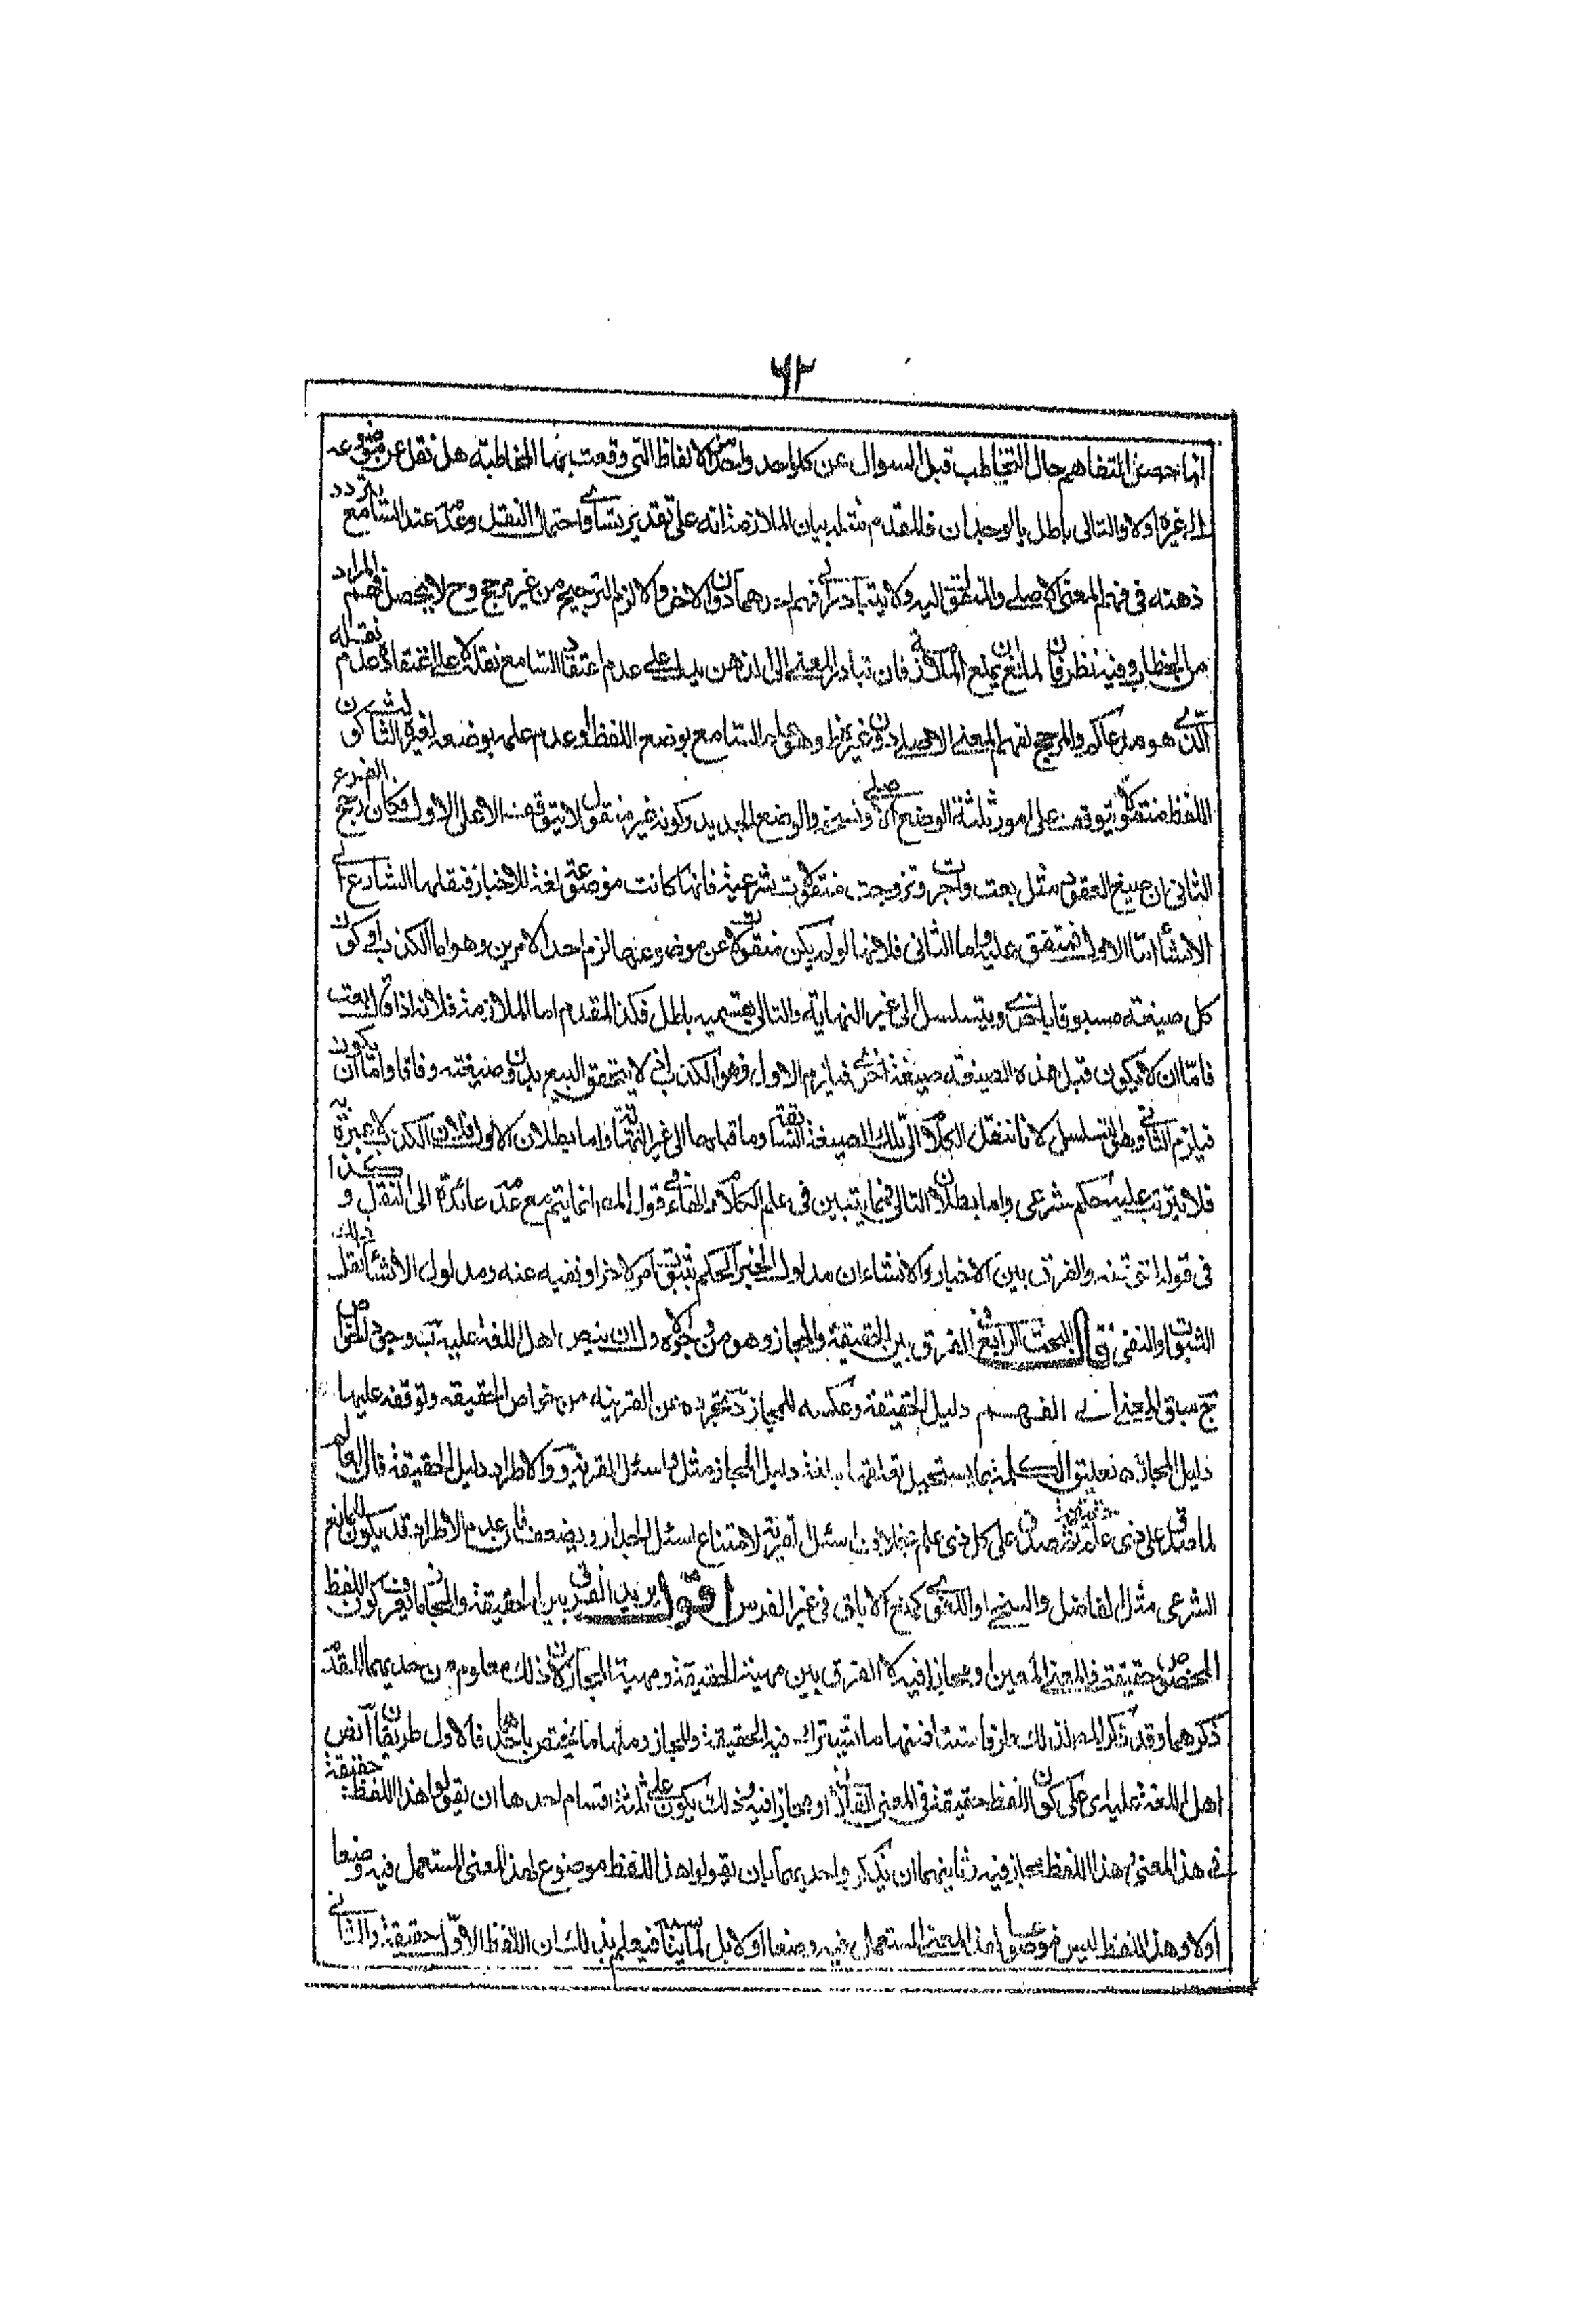 ٦٢
انما حصل التفاهم حال التخاطب قبل السوال عن كل واحد واحد من الالفاظ التى وقعت بها المخاطبة هل نقل عن موضوعه
الى غيره اولا والتالى باطل بالوجدان فالمقدم مثله بيان الملازمة انه على تقدير تساوى احتمال النقل وعدمه عند السامع يتردد
ذهنه فى فهم المعنى الاصلى والمنقول اليه ولا يتبادر الى فهم احدهما دون الاخر والا لزم الترجيح من غير مرجح وح لا يحصل فهم المراد
من اللفظ وفيه نظر فان لمانع ان يمنع الملازمة فان تبادر المعنى الى الذهن يدل على عدم اعتقاد السامع نقله لا على اعتقاد عدم نقله
الذى هو مدعاكم والمرجح لفهم المعنى الاصلى دون غيره هو علم السامع بوضع اللفظ له وعدم علمه بوضعه لغيره الثالث كون
اللفظ منقولا يتوقف على امور ثلثة الوضع الاصلى ونسخه والوضع الجديد وكونه غير منقول لا يتوقف الا على الاول فكان ارجح الفرع
الثانى ان صيغ العقود مثل بعت واجرت وتزوجت منقولات شرعية فانها كانت موضوعة لغة للاخبار فنقلها الشارع الى
الانشاء اما الاول فمتفق عليه واما الثانى فلانها لو لم يكن منقولة عن موضوعها لزم احد الامرين وهو اما الكذب او كون
كل صيغة مسبوقة باخرى ويتسلسل الى غير النهاية والتالى بقسميه باطل فكذا المقدم اما الملازمة فلانه اذا قال بعت
فاما ان لا يكون قبل هذه الصيغة صيغة اخرى فيلزم الاول وهو الكذب اذ لا يتحقق البيع بدون صيغته وفاقا واما ان يكون
فيلزم الثانى وهو التسلسل لانا ننقل الكلام الى تلك الصيغة السابقة وما قبلها الى غير النهاية واما بطلان الاول فلان الكذب لا عبرة به
فلا يترتب عليه حكم شرعى واما بطلان التالى فلما يتبين فى علم الكلام قول المص انما يتم مع عدمه عائدة الى النقل وكذا
فى قوله والفرق بين الاخبار والانشاء ان مدلول الخبر الحكم بثبوت امر لاخر او نفيه عنه ومدلول الانشاء نفس ذلك
الثبوت او النفى قال البحث الرابع فى الفرق بين الحقيقة والمجاز وهو من وجوه ا ان ينص اهل اللغة عليه ب وجود الخواص
ج سبق المعنى الى الفهم دليل الحقيقة وعكسه للمجاز د تجرده عن القرينه من خواص الحقيقه وتوقفه عليها
دليل المجاز ه تعليق الكلمة بما يستحيل تعلقها به لغة دليل المجاز مثل واسئل القرية و والاطراد دليل الحقيقة فالعالم
لما صدق على ذى علم صدق على كل ذى علم بخلاف اسئل القرية لامتناع اسئل الجدار ويضعف فان عدم الاطراد قد يكون لمانع
الشرعى مثل الفاضل والسخى او اللغوى كمنع الابلق فى غير الفرس اقول يريد الفرق بين الحقيقة والمجاز كون اللفظ
المخصوص حقيقة فى المعنى المعين او مجازا فيه لا الفرق بين مهية الحقيقة ومهية المجاز لان ذلك معلوم من حديهما المتقدم
ذكرهما وقد ذكر المص لذلك طرقا ستة فمنها ما اشترك فيه الحقيقة والمجاز ومنها ما يختص باحدهما فالاول طريقان ا نص
اهل اللغة عليه اى على كون اللفظ حقيقة فى المعنى الفلانى او مجازا فيه وذلك يكون على ثلثة اقسام احدها ان يقولوا هذا اللفظ حقيقة
فى هذا المعنى وهذا اللفظ مجاز فيه وثانيهما ان يذكروا حديهما بان يقولوا هذا اللفظ موضوع لهذا المعنى المستعمل فيه وضعا
اولا وهذا اللفظ ليس موضوعا لهذا المعنى المستعمل فيه وضعا اولا بل لمناسبة فيعلم بذلك ان اللفظ الاول حقيقة والثانى